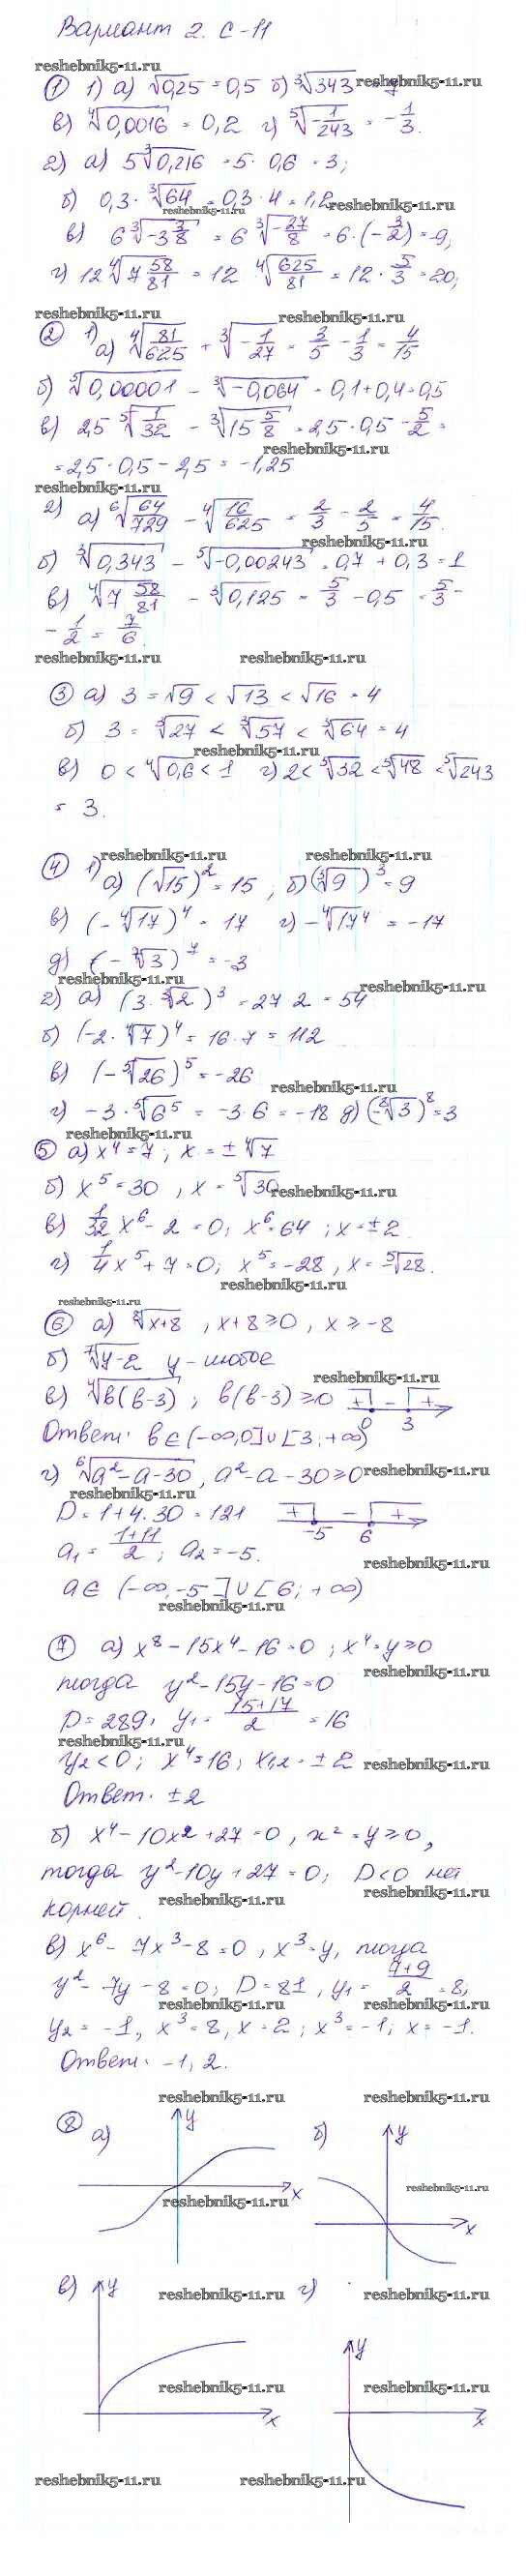 Вариант 2. С-11
reshebnik5-11.ru
① 1) а) √0,25 = 0,5 б) ³√343 = 7 reshebnik5-11.ru
в) ⁴√0,0016 = 0,2 г) ⁵√-1/243 = -1/3.
2) а) 5 ³√0,216 = 5 · 0,6 = 3;
б) 0,3 · ³√64 = 0,3 · 4 = 1,2 reshebnik5-11.ru
reshebnik5-11.ru
в) 6 ³√-3 3/8 = 6 ³√-27/8 = 6 · (-3/2) = -9;
г) 12 ⁴√7 58/81 = 12 ⁴√625/81 = 12 · 5/3 = 20;
reshebnik5-11.ru reshebnik5-11.ru
② 1) а) ⁴√81/625 + ³√-1/27 = 3/5 - 1/3 = 4/15
б) ⁵√0,00001 - ³√-0,064 = 0,1 + 0,4 = 0,5
в) 2,5 ⁵√1/32 - ³√15 5/8 = 2,5 · 0,5 - 5/2 =
reshebnik5-11.ru
= 2,5 · 0,5 - 2,5 = -1,25
reshebnik5-11.ru
2) а) ⁶√64/729 - ⁴√16/625 = 2/3 - 2/5 = 4/15.
reshebnik5-11.ru
б) ³√0,343 - ⁵√-0,00243 = 0,7 + 0,3 = 1
в) ⁴√7 58/81 - ³√0,125 = 5/3 - 0,5 = 5/3 -
- 1/2 = 7/6.
reshebnik5-11.ru reshebnik5-11.ru
③ а) 3 = √9 < √13 < √16 = 4
б) 3 = ³√27 < ³√57 < ³√64 = 4
reshebnik5-11.ru
в) 0 < ⁴√0,6 < 1 г) 2 < ⁵√32 < ⁵√48 < ⁵√243
= 3.
reshebnik5-11.ru reshebnik5-11.ru
④ 1) а) (√15)² = 15, б) (³√9)³ = 9
в) (-⁴√17)⁴ = 17 г) -⁴√17⁴ = -17
д) (-⁷√3)⁷ = -3
reshebnik5-11.ru reshebnik5-11.ru
2) а) (3 · ³√2)³ = 27 · 2 = 54
б) (-2 · ⁴√7)⁴ = 16 · 7 = 112
в) (-⁵√26)⁵ = -26
reshebnik5-11.ru
г) -3 · ⁵√6⁵ = -3 · 6 = -18 д) (-⁸√3)⁸ = 3
reshebnik5-11.ru
⑤ а) x⁴ = 7; x = ±⁴√7
б) x⁵ = 30, x = ⁵√30 reshebnik5-11.ru
в) 1/32 x⁶ - 2 = 0; x⁶ = 64; x = ±2.
г) 1/4 x⁵ + 7 = 0; x⁵ = -28, x = -⁵√28.
reshebnik5-11.ru
reshebnik5-11.ru
⑥ а) ⁸√x+8, x+8 ≥ 0, x ≥ -8
б) ⁷√y-2 y - любое
reshebnik5-11.ru
в) ⁴√b(b-3); b(b-3) ≥ 0 + - + 0 3
Ответ: b ∈ (-∞,0] ∪ [3;+∞)
г) ⁶√a²-a-30, a²-a-30 ≥ 0 reshebnik5-11.ru
D = 1+4·30 = 121 + - + -5 6
a₁ = 1+11/2; a₂ = -5.
reshebnik5-11.ru
a ∈ (-∞,-5] ∪ [6;+∞)
reshebnik5-11.ru
⑦ а) x⁸ - 15x⁴ - 16 = 0; x⁴ = y ≥ 0
reshebnik5-11.ru
тогда y² - 15y - 16 = 0
D = 289, y₁ = 15+17/2 = 16
reshebnik5-11.ru
y₂ < 0; x⁴ = 16; x₁,₂ = ±2 reshebnik5-11.ru
Ответ. ±2
б) x⁴ - 10x² + 27 = 0, x² = y ≥ 0,
тогда y² - 10y + 27 = 0; D < 0 нет
reshebnik5-11.ru
корней. reshebnik5-11.ru
в) x⁶ - 7x³ - 8 = 0, x³ = y, тогда
y² - 7y - 8 = 0; D = 81, y₁ = 7+9/2 = 8,
reshebnik5-11.ru reshebnik5-11.ru
y₂ = -1, x³ = 8, x = 2; x³ = -1; x = -1.
Ответ. -1, 2.
reshebnik5-11.ru reshebnik5-11.ru
⑧ а) y x б) y x
reshebnik5-11.ru reshebnik5-11.ru
в) y reshebnik5-11.ru г) reshebnik5-11.ru
y
reshebnik5-11.ru reshebnik5-11.ru
x x
reshebnik5-11.ru reshebnik5-11.ru